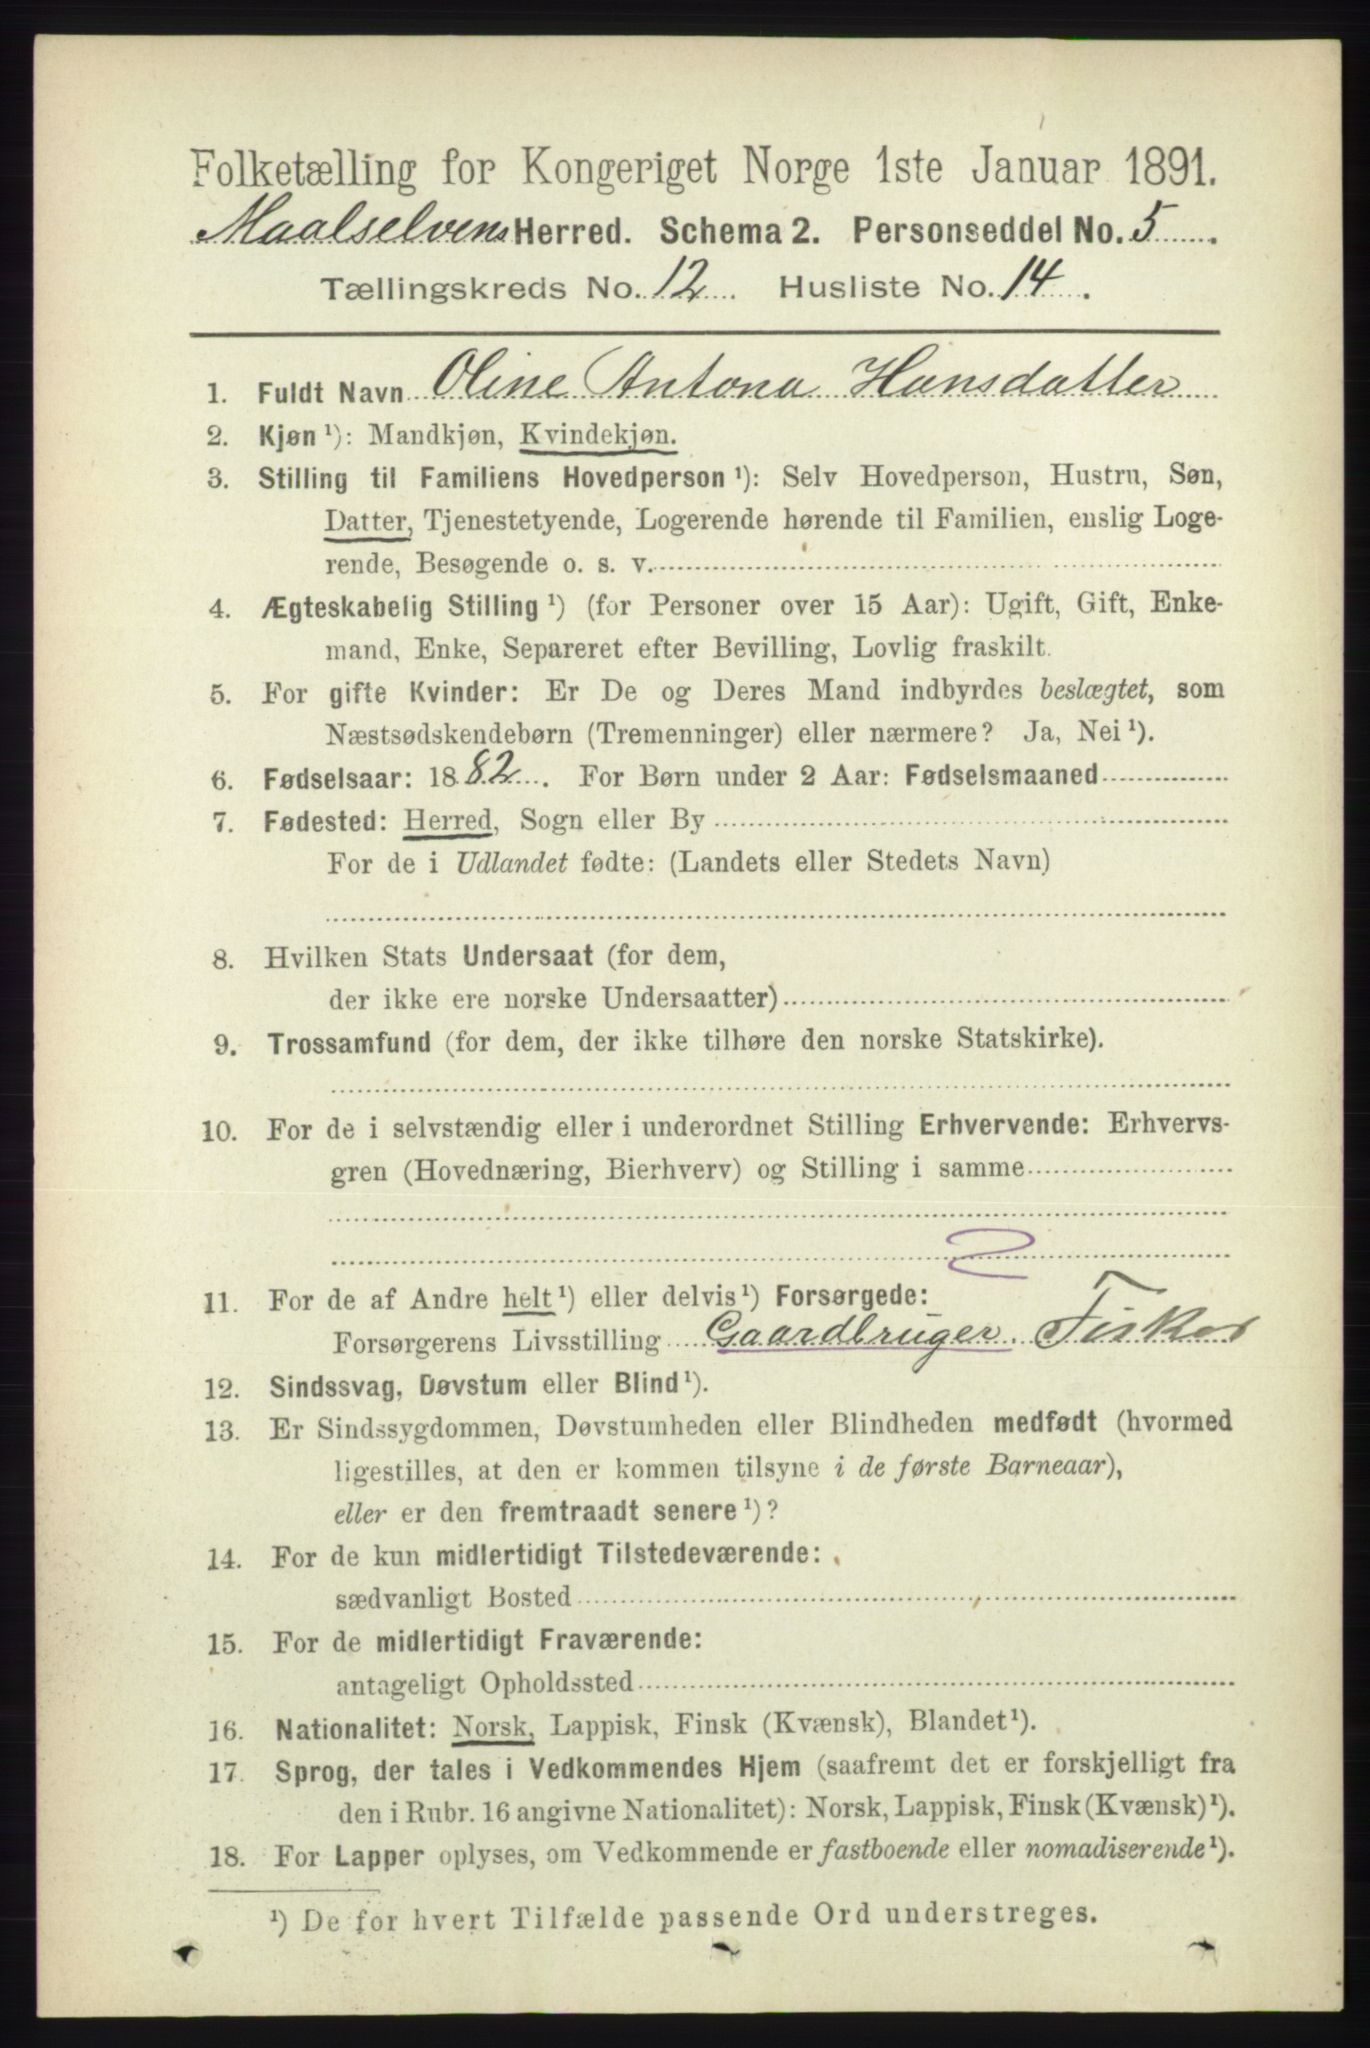 Folketælling for Kongeriget Norge 1ste Januar 1891.
Maalselvens Herred. Schema 2. Personseddel No. 5
Tællingskreds No. 12. Husliste No. 14.
1. Fuldt Navn Oline Antona Hansdatter
2. Kjøn ¹): Mandkjøn, Kvindekjøn.
3. Stilling til Familiens Hovedperson ¹): Selv Hovedperson, Hustru, Søn,
Datter, Tjenestetyende, Logerende hørende til Familien, enslig Loge-
rende, Besøgende o. s. v.
4. Ægteskabelig Stilling ¹) (for Personer over 15 Aar): Ugift, Gift, Enke-
mand, Enke, Separeret efter Bevilling, Lovlig fraskilt.
5. For gifte Kvinder: Er De og Deres Mand indbyrdes beslægtet, som
Næstsødskendebørn (Tremenninger) eller nærmere? Ja, Nei ¹).
6. Fødselsaar: 1882. For Børn under 2 Aar: Fødselsmaaned
7. Fødested: Herred, Sogn eller By
For de i Udlandet fødte: (Landets eller Stedets Navn)
8. Hvilken Stats Undersaat (for dem,
der ikke ere norske Undersaatter)
9. Trossamfund (for dem, der ikke tilhøre den norske Statskirke).
10. For de i selvstændig eller i underordnet Stilling Erhvervende: Erhvervs-
gren (Hovednæring, Bierhverv) og Stilling i samme
2
11. For de af Andre helt ¹) eller delvis ¹) Forsørgede:
Forsørgerens Livsstilling Gaardbruger Fisker
12. Sindssvag, Døvstum eller Blind ¹).
13. Er Sindssygdommen, Døvstumheden eller Blindheden medfødt (hvormed
ligestilles, at den er kommen tilsyne i de første Barneaar),
eller er den fremtraadt senere ¹)?
14. For de kun midlertidigt Tilstedeværende:
sædvanligt Bosted
15. For de midlertidigt Fraværende:
antageligt Opholdssted
16. Nationalitet: Norsk, Lappisk, Finsk (Kvænsk), Blandet ¹).
17. Sprog, der tales i Vedkommendes Hjem (saafremt det er forskjelligt fra
den i Rubr. 16 angivne Nationalitet): Norsk, Lappisk, Finsk (Kvænsk) ¹).
18. For Lapper oplyses, om Vedkommende er fastboende eller nomadiserende ¹).
¹) De for hvert Tilfælde passende Ord understreges.